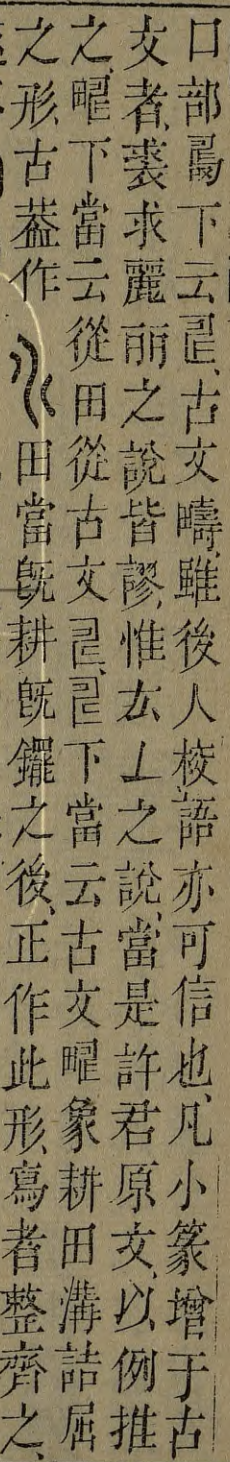 口部𠷎下云𠃬、古文疇、雖後人校語亦可信也、凡小篆增于古
文者、裘求麗丽之說皆謬、惟厷𠃋之說、當是許君原文、以例推
之、𤲮下當云從田從古文𠃬、𠃬下當云古文𤲮象耕田溝詰屈
之形、古葢作田當旣耕旣䥯之後、正作此形、寫者整齊之、